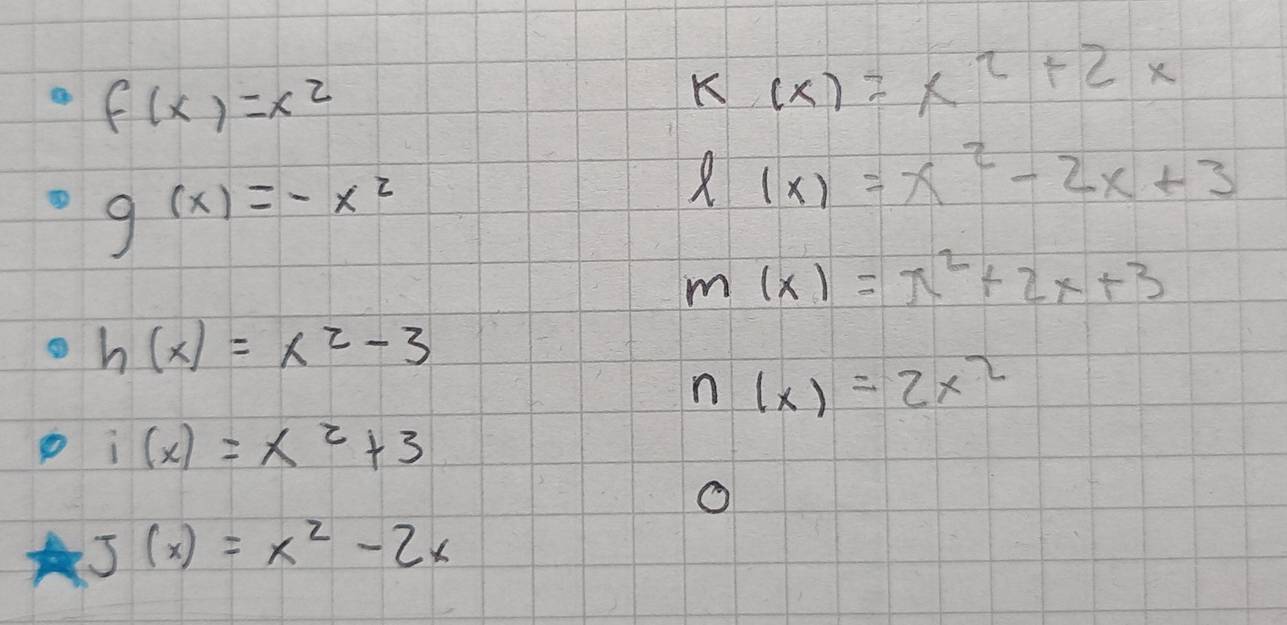 f(x) = x²
g(x) = - x²
h(x) = x² - 3
i(x) = x² + 3
J(x) = x² - 2x
K(x) = x² + 2x
l(x) = x² - 2x + 3
m(x) = x² + 2x + 3
n(x) = 2x²
o